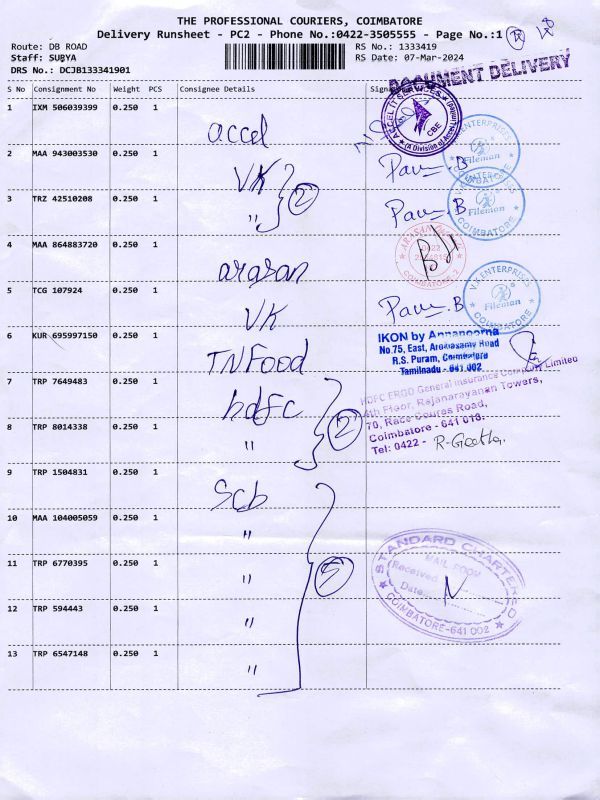 THE PROFESSIONAL COURIERS, COIMBATORE
Delivery Runsheet - PC2 - Phone No.:0422-3505555 - Page No.:1
Route: DB ROAD RS No.: 1333419
Staff: SURYA RS Date: 07-Mar-2024
DRS No.: DCJB133341901
DOCUMENT DELIVERY
S No Consignment No Weight PCS Consignee Details
1 IXM 506039399 0.250 1 accel
ACCEL IT SERVICES
(A Division of Accel Limited)
CBE
2 MAA 943003530 0.250 1 VK
V.K ENTERPRISES
Fileman
COIMBATORE
3 TRZ 42510208 0.250 1 " 2
V.K ENTERPRISES
Fileman
COIMBATORE
4 MAA 864883720 0.250 1 arasan
COIMBATORE-2
5 TCG 107924 0.250 1 VK
V.K ENTERPRISES
Fileman
COIMBATORE
6 KUR 695997150 0.250 1 TNFood
IKON by Annapoorna
No.75, East, Arokiasamy Road
R.S. Puram, Coimbatore
Tamilnadu - 641 002
7 TRP 7649483 0.250 1 hdfc
HDFC ERGO General Insurance Company Limited
4th Floor, Rajanarayanan Towers,
70, Race Course Road,
Coimbatore - 641 018.
Tel: 0422 - R-Geetha
8 TRP 8014338 0.250 1 " 2
9 TRP 1504831 0.250 1 Scb
10 MAA 104005059 0.250 1 "
11 TRP 6770395 0.250 1 " 5
STANDARD CHARTERED
MAIL ROOM
Received
Date:
COIMBATORE-641 002
12 TRP 594443 0.250 1 "
13 TRP 6547148 0.250 1 "